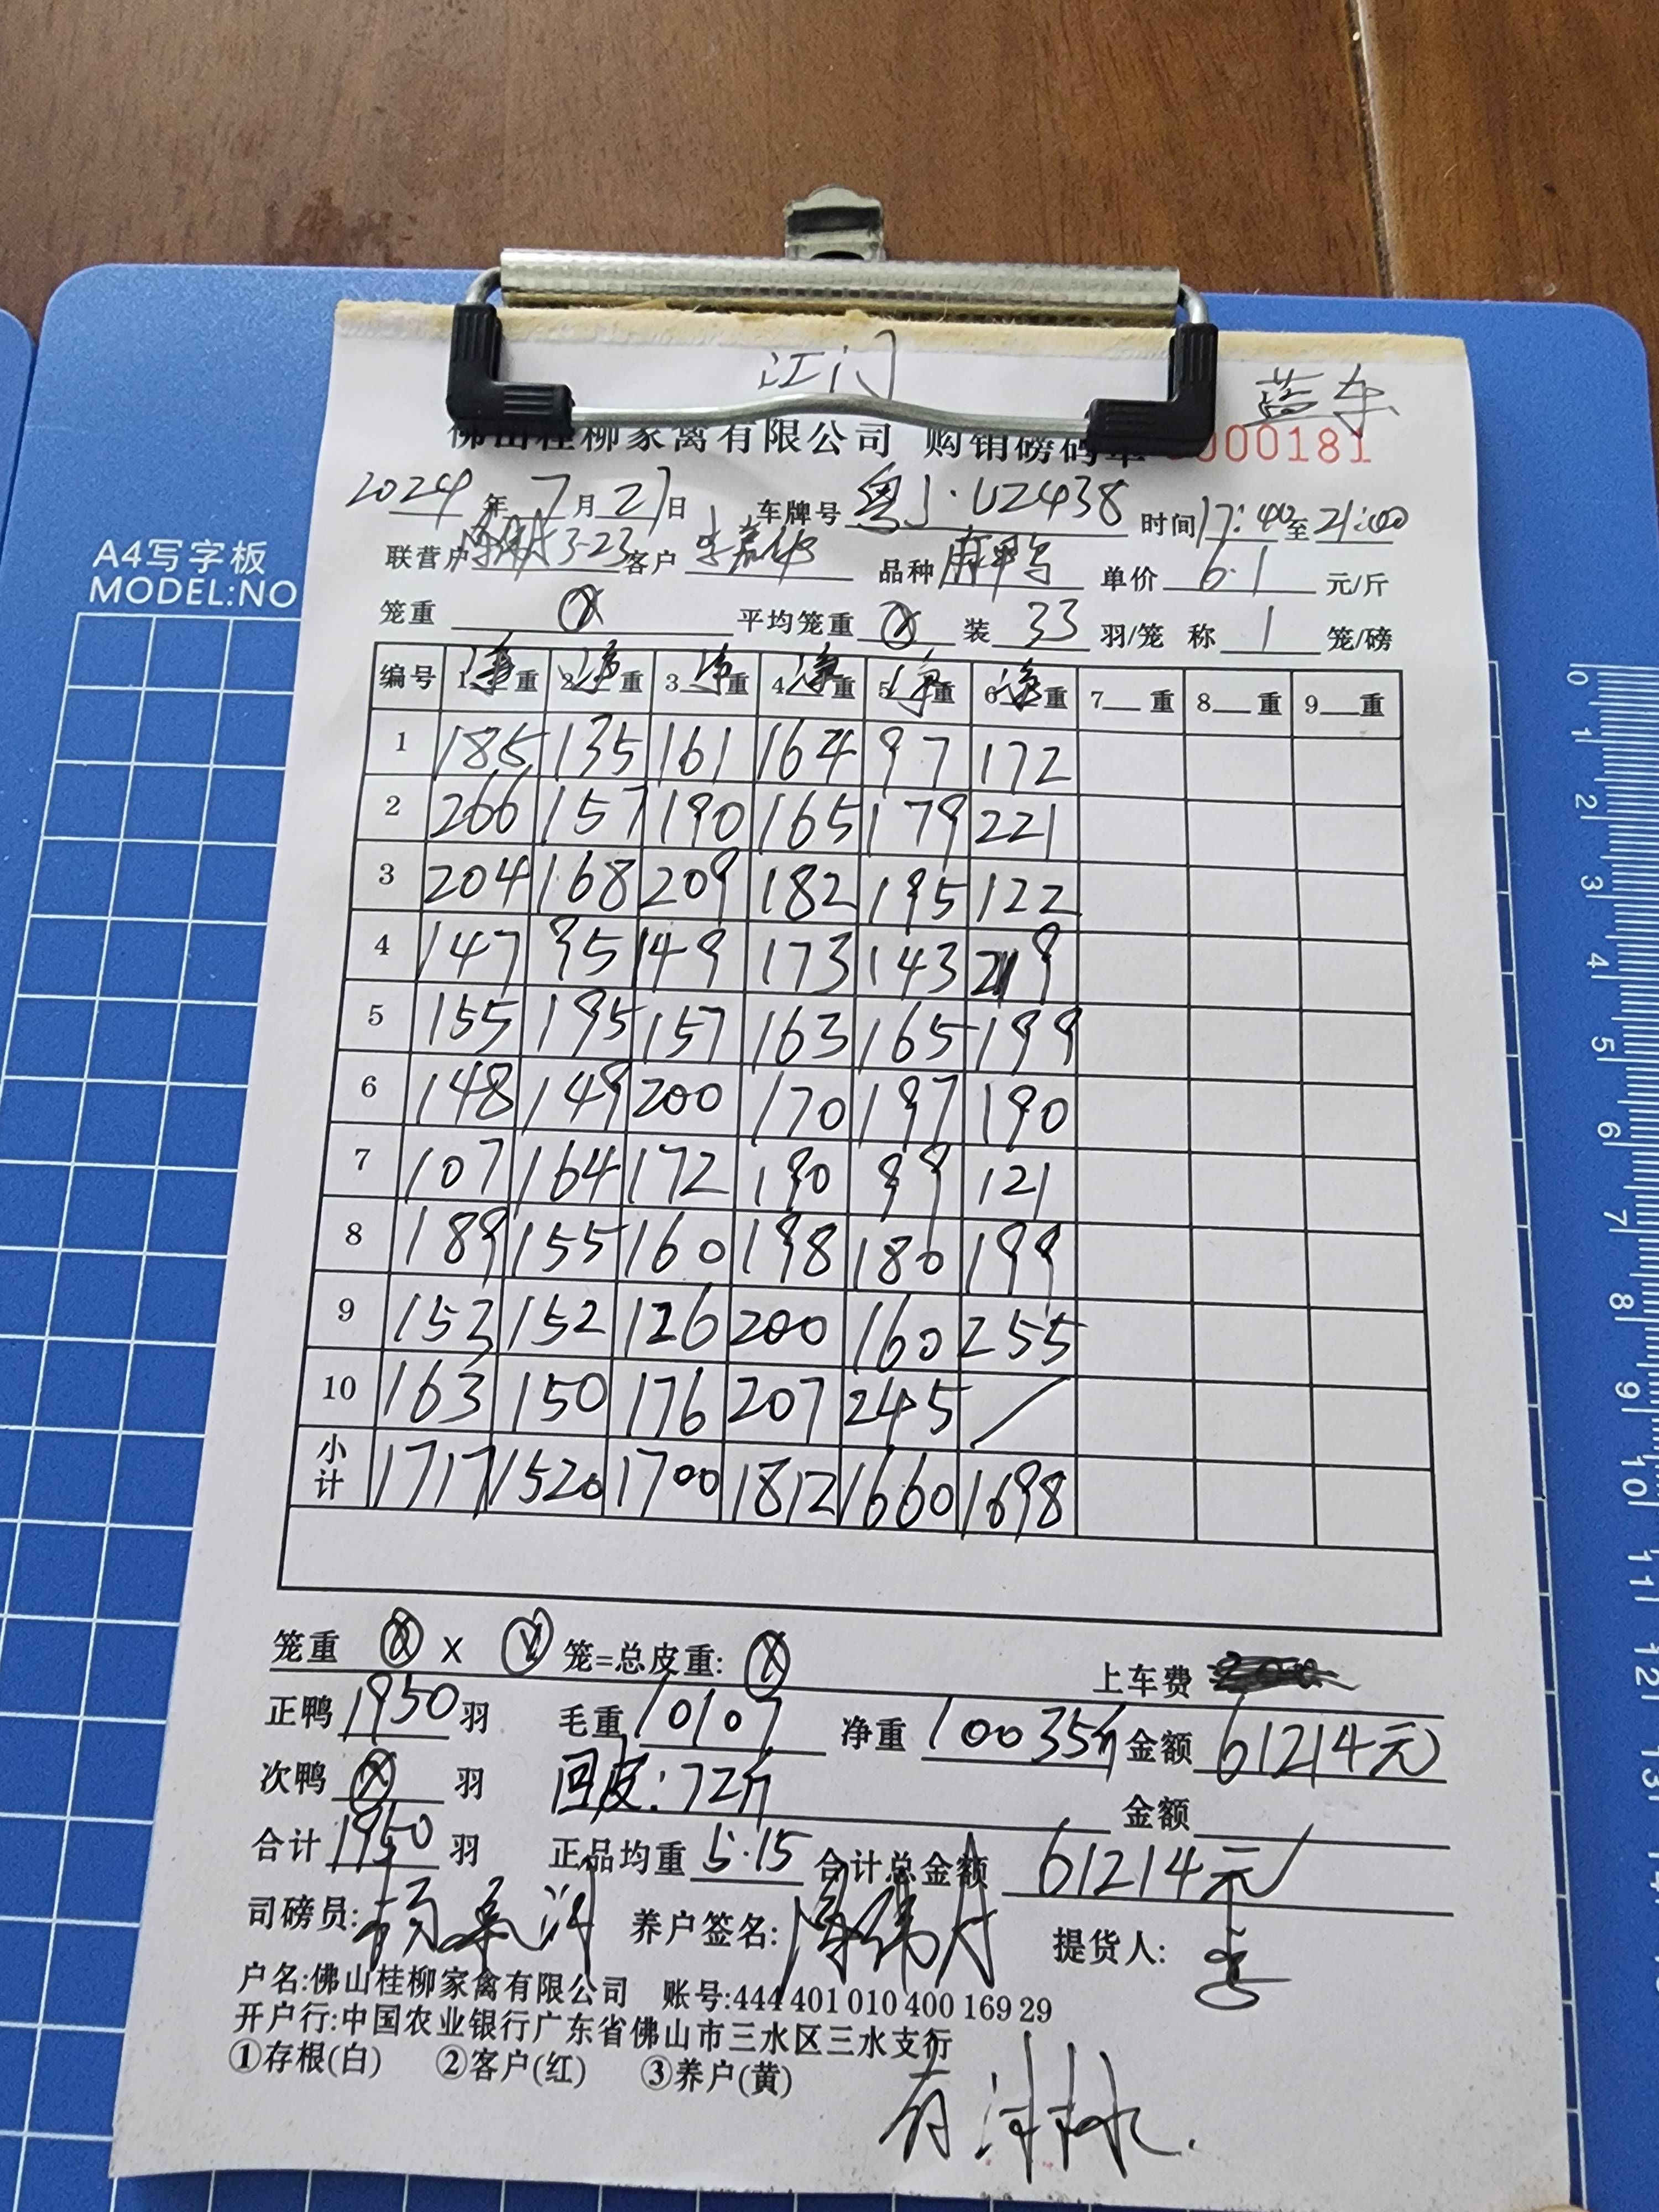 江门
蓝车
佛山桂柳家禽有限公司 购销磅码单 000181
2024年7月21日 车牌号 粤J·U2438 时间17:40至21:00
联营户 3-23 客户 品种 麻鸭 单价 6.1 元/斤
笼重 ⓧ 平均笼重 ⓧ 装 33 羽/笼 称 1 笼/磅
编号 1净重 2净重 3净重 4净重 5净重 6净重 7__重 8__重 9__重
1 185 135 161 164 97 172
2 266 157 190 165 179 221
3 204 168 209 182 195 122
4 147 95 149 173 143 219
5 155 195 157 163 165 199
6 148 149 200 170 197 190
7 107 164 172 190 99 121
8 189 155 160 198 180 199
9 153 152 126 200 160 255
10 163 150 176 207 245 /
小计 1717 1520 1700 1812 1660 1698
笼重 ⓧ x ⓧ 笼=总皮重: ⓧ 上车费
正鸭 1950 羽 毛重 10107 净重 10035斤 金额 61214元
次鸭 ⓧ 羽 回皮:72斤 金额
合计 1950 羽 正品均重 5.15 合计总金额 61214元
司磅员: 养户签名: 提货人:
户名:佛山桂柳家禽有限公司 账号:444 401 010 400 169 29
开户行:中国农业银行广东省佛山市三水区三水支行
①存根(白) ②客户(红) ③养户(黄)
有淋水.
A4写字板
MODEL:NO
0 1 2 3 4 5 6 7 8 9 10 11 12 13 14